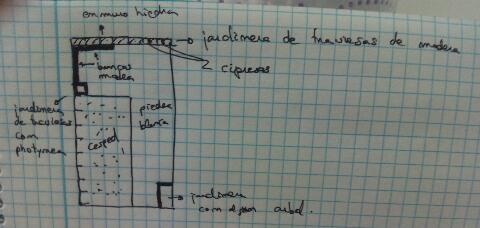 en muro hiedra
jardinera de traviesas de madera
cipreses
bancos
madera
jardinera
de
con
piedra
blanca
cesped
jardinera
con algun arbol.